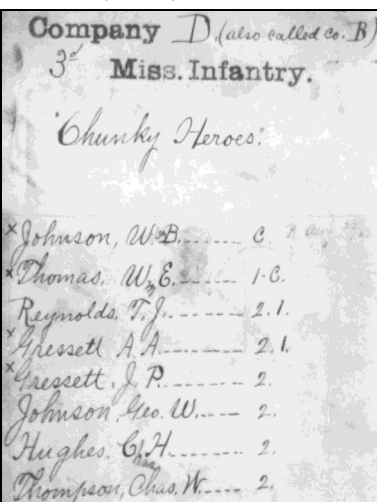 Company D. (also called co. B)
3d Miss. Infantry.
"Chunky Heroes."
x Johnson, W. B. ------- C.
x Thomas, W. E. ------- 1-C.
Reynolds, T. J. ------- 2.1.
x Gressett A. A. ------- 2.1.
x Gressett, J. P. ------- 2.
Johnson, Geo. W. ----- 2.
Hughes, C. H. ------- 2.
Thompson, Chas. W. ---- 2.